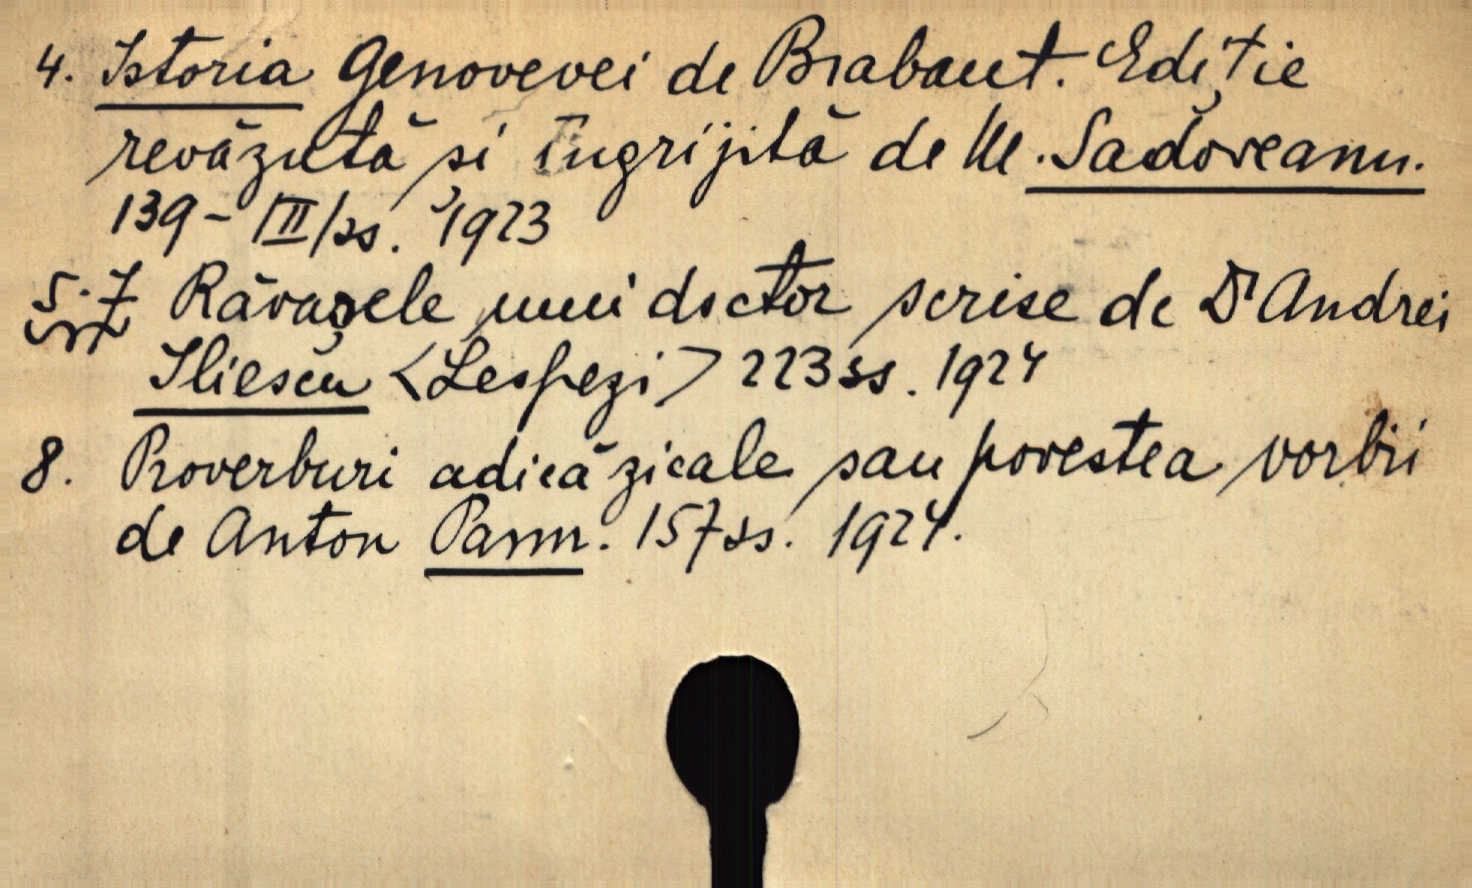 4. Istoria Genovevei de Brabant. Ediție
revăzută și îngrijită de M. Sadoveanu.
139-III/ss. 1923
5-7 Răvașele unui doctor scrise de Dr Andrei
Iliescu <Lespezi> 223 ss. 1924
8. Proverburi adică zicale sau povestea vorbii
de Anton Pann. 157 ss. 1924.